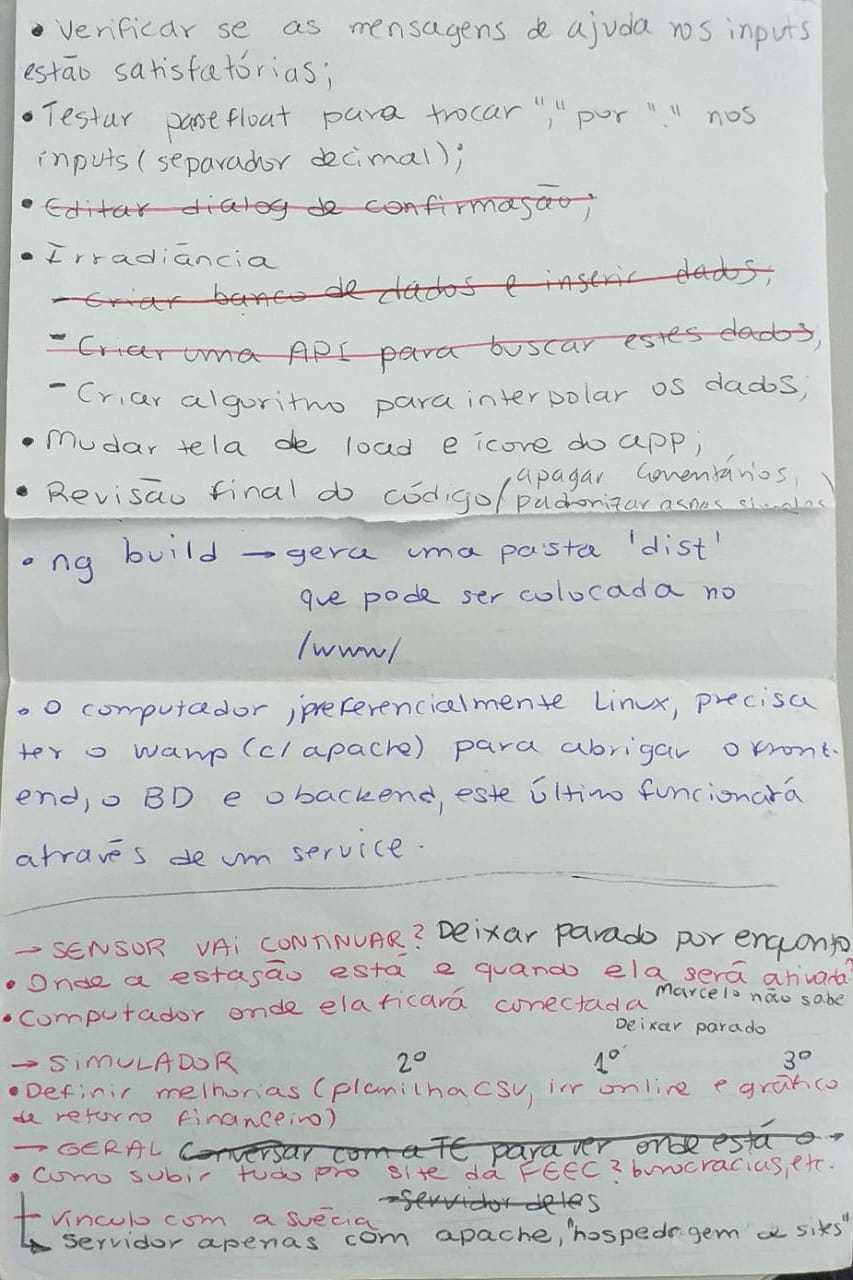 • Verificar se as mensagens de ajuda nos inputs
estão satisfatórias;
• Testar parsefloat para trocar "," por "." nos
inputs (separador decimal);
• Editar dialog de confirmasão;
• Irradiância
- Criar banco de dados e inserir dados;
- Criar uma API para buscar estes dados;
- Criar algoritmo para interpolar os dados;
• Mudar tela de load e ícone do app;
• Revisão final do código (apagar comentários,
padronizar aspas simples)
• ng build → gera uma pasta 'dist'
que pode ser colocada no
/www/
• O computador, preferencialmente Linux, precisa
ter o wamp (c/ apache) para abrigar o front-
end, o BD e o backend, este último funcionará
através de um service.
→ SENSOR VAI CONTINUAR? Deixar parado por enquanto
• Onde a estasão está e quando ela será ativada?
• Computador onde ela ficará conectada Marcelo não sabe
Deixar parado
→ SIMULADOR 2º 1º 3º
• Definir melhorias (planilha CSV, irr online e gráfico
de retorno financeiro)
→ GERAL Conversar com a TE para ver onde está o →
• Como subir tudo pro site da FEEC? burocracias, etc.
→ servidor deles
vínculo com a suécia
↳ Servidor apenas com apache, "hospedagem de sites"